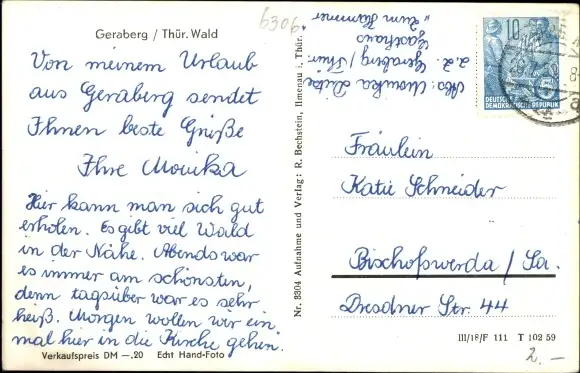 Geraberg / Thür. Wald
6306
Von meinem Urlaub
aus Geraberg sendet
Ihnen beste Grüße
Ihre Monika
Hier kann man sich gut
erholen. Es gibt viel Wald
in der Nähe. Abends war
es immer am schönsten,
denn tagsüber war es sehr
heiß. Morgen wollen wir ein
mal hier in die Kirche gehen.
Verkaufspreis DM —,20 Echt Hand-Foto
Nr. 8304 Aufnahme und Verlag: R. Bechstein, Ilmenau i. Thür.
Abs: Monika
z.Z. Geraberg / Thür.
Gasthaus
„Zum Hammer
10
DEUTSCHE
DEMOKRATISCHE REPUBLIK
Fräulein
Katie Schneider
Bischofswerda / Sa.
Dresdner Str. 44
III/18/F 111 T 102 59
2.-